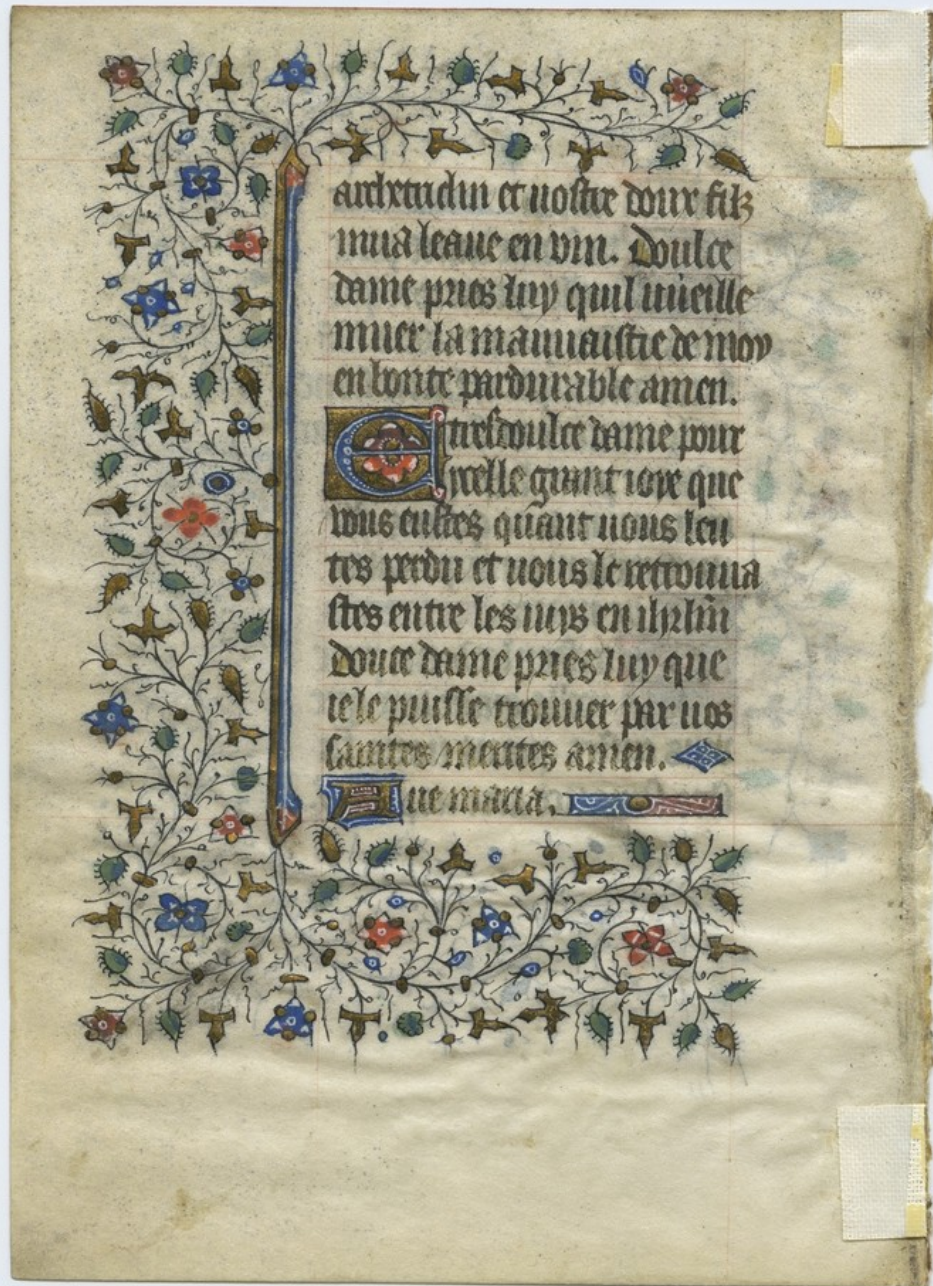 archetriclin et nostre doux filz
mua leaue en vin. Doulce
dame pries luy quil uueille
muer la mauuaistie de moy
en bonte pardurable amen.
E tresdoulce dame pour
ycelle grant ioye que
vous eustes quant uous leu
tes perdu et uous le retrouua
stes entre les iuys en ihrlm
douce dame pries luy que
ie le puisse trouuer par uos
saintes merites amen.
Aue maria.